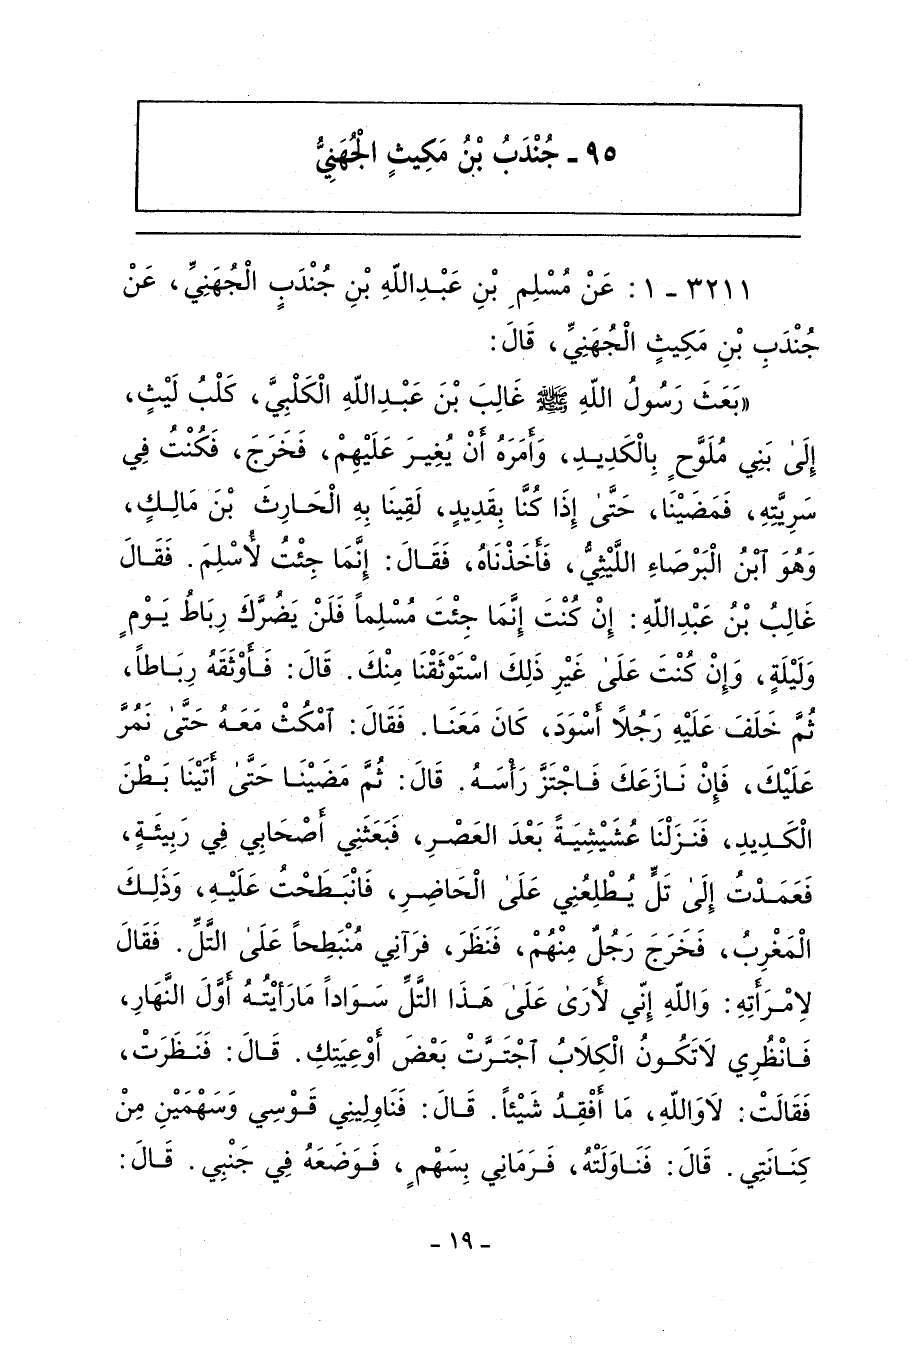 ٩٥ - جُنْدَبُ بْنُ مَكِيثٍ الْجُهَنِيُّ
٣٢١١ - ١ : عَنْ مُسْلِمِ بْنِ عَبْدِاللّهِ بْنِ جُنْدَبٍ الْجُهَنِيِّ، عَنْ
جُنْدَبِ بْنِ مَكِيثٍ الْجُهَنِيِّ، قَالَ:
«بَعَثَ رَسُولُ اللّهِ ﷺ غَالِبَ بْنَ عَبْدِاللّهِ الْكَلْبِيَّ، كَلْبُ لَيْثٍ،
إِلَىٰ بَنِي مُلَوَّحٍ بِالْكَدِيدِ، وَأَمَرَهُ أَنْ يُغِيرَ عَلَيْهِمْ، فَخَرَجَ، فَكُنْتُ فِي
سَرِيَّتِهِ، فَمَضَيْنَا، حَتَّىٰ إِذَا كُنَّا بِقَدِيدٍ، لَقِينَا بِهِ الْحَارِثَ بْنَ مَالِكٍ،
وَهُوَ ٱبْنُ الْبَرْصَاءِ اللَّيْثِيُّ، فَأَخَذْنَاهُ، فَقَالَ: إِنَّمَا جِئْتُ لُأسْلِمَ. فَقَالَ
غَالِبُ بْنُ عَبْدِاللّهِ: إِنْ كُنْتَ إِنَّمَا جِئْتَ مُسْلِماً فَلَنْ يَضُرَّكَ رِبَاطُ يَوْمٍ
وَلَيْلَةٍ، وَإِنْ كُنْتَ عَلَىٰ غَيْرِ ذَلِكَ اسْتَوْثَقْنَا مِنْكَ. قَالَ: فَأَوْثَقَهُ رِبَاطاً،
ثُمَّ خَلَفَ عَلَيْهِ رَجُلاً أَسْوَدَ، كَانَ مَعَنَا. فَقَالَ: ٱمْكُثْ مَعَهُ حَتَّىٰ نَمُرَّ
عَلَيْكَ، فَإِنْ نَازَعَكَ فَاجْتَزَّ رَأْسَهُ. قَالَ: ثُمَّ مَضَيْنَا حَتَّىٰ أَتَيْنَا بَطْنَ
الْكَدِيدِ، فَنَزَلْنَا عُشَيْشِيَةً بَعْدَ العَصْرِ، فَبَعَثَنِي أَصْحَابِي فِي رَبِيئَةٍ،
فَعَمَدْتُ إِلَىٰ تَلٍّ يُطْلِعُنِي عَلَىٰ الْحَاضِرِ، فَانْبَطَحْتُ عَلَيْهِ، وَذَلِكَ
الْمَغْرِبُ، فَخَرَجَ رَجُلٌ مِنْهُمْ، فَنَظَرَ، فَرَآنِي مُنْبَطِحاً عَلَىٰ التَّلِّ. فَقَالَ
لِامْرَأَتِهِ: وَاللّهِ إِنِّي لَأرَىٰ عَلَىٰ هَذَا التَّلِّ سَوَاداً مَارَأيْتُهُ أَوَّلَ النَّهَارِ،
فَانْظُرِي لَاتَكُونُ الْكِلَابُ ٱجْتَرَّتْ بَعْضَ أَوْعِيَتِكِ. قَالَ: فَنَظَرَتْ،
فَقَالَتْ: لَاوَاللّهِ، مَا أَفْقِدُ شَيْئاً. قَالَ: فَنَاوِلِينِي قَوْسِي وَسَهْمَيْنِ مِنْ
كِنَانَتِي. قَالَ: فَنَاوَلَتْهُ، فَرَمَانِي بِسَهْمٍ، فَوَضَعَهُ فِي جَنْبِي. قَالَ:
- ١٩ -